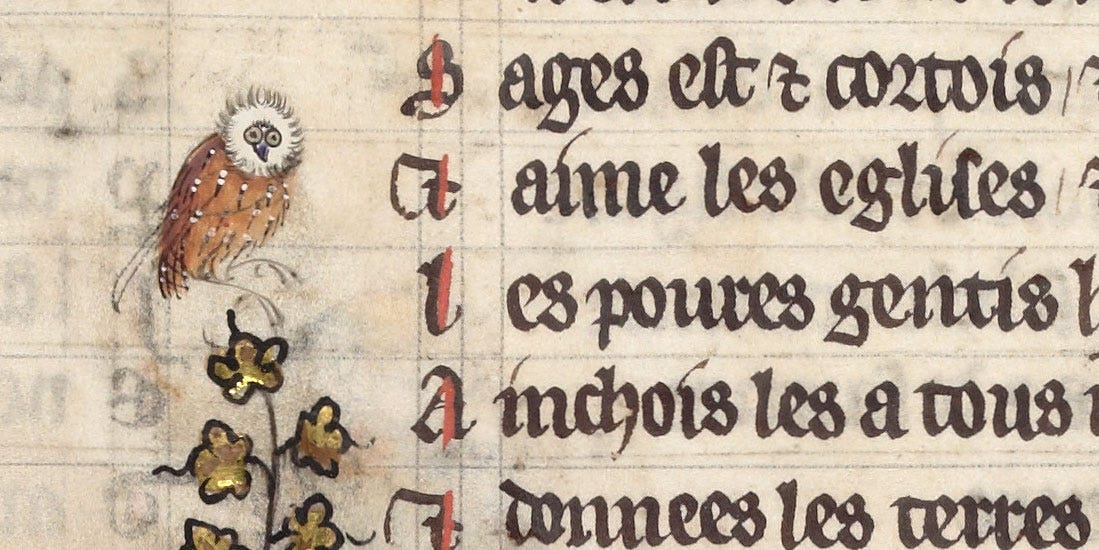 S ages est ⁊ cortois / ⁊
Et aime les eglises / ⁊
l es poures gentis h
A inchois les a tous
Et donnees les terres